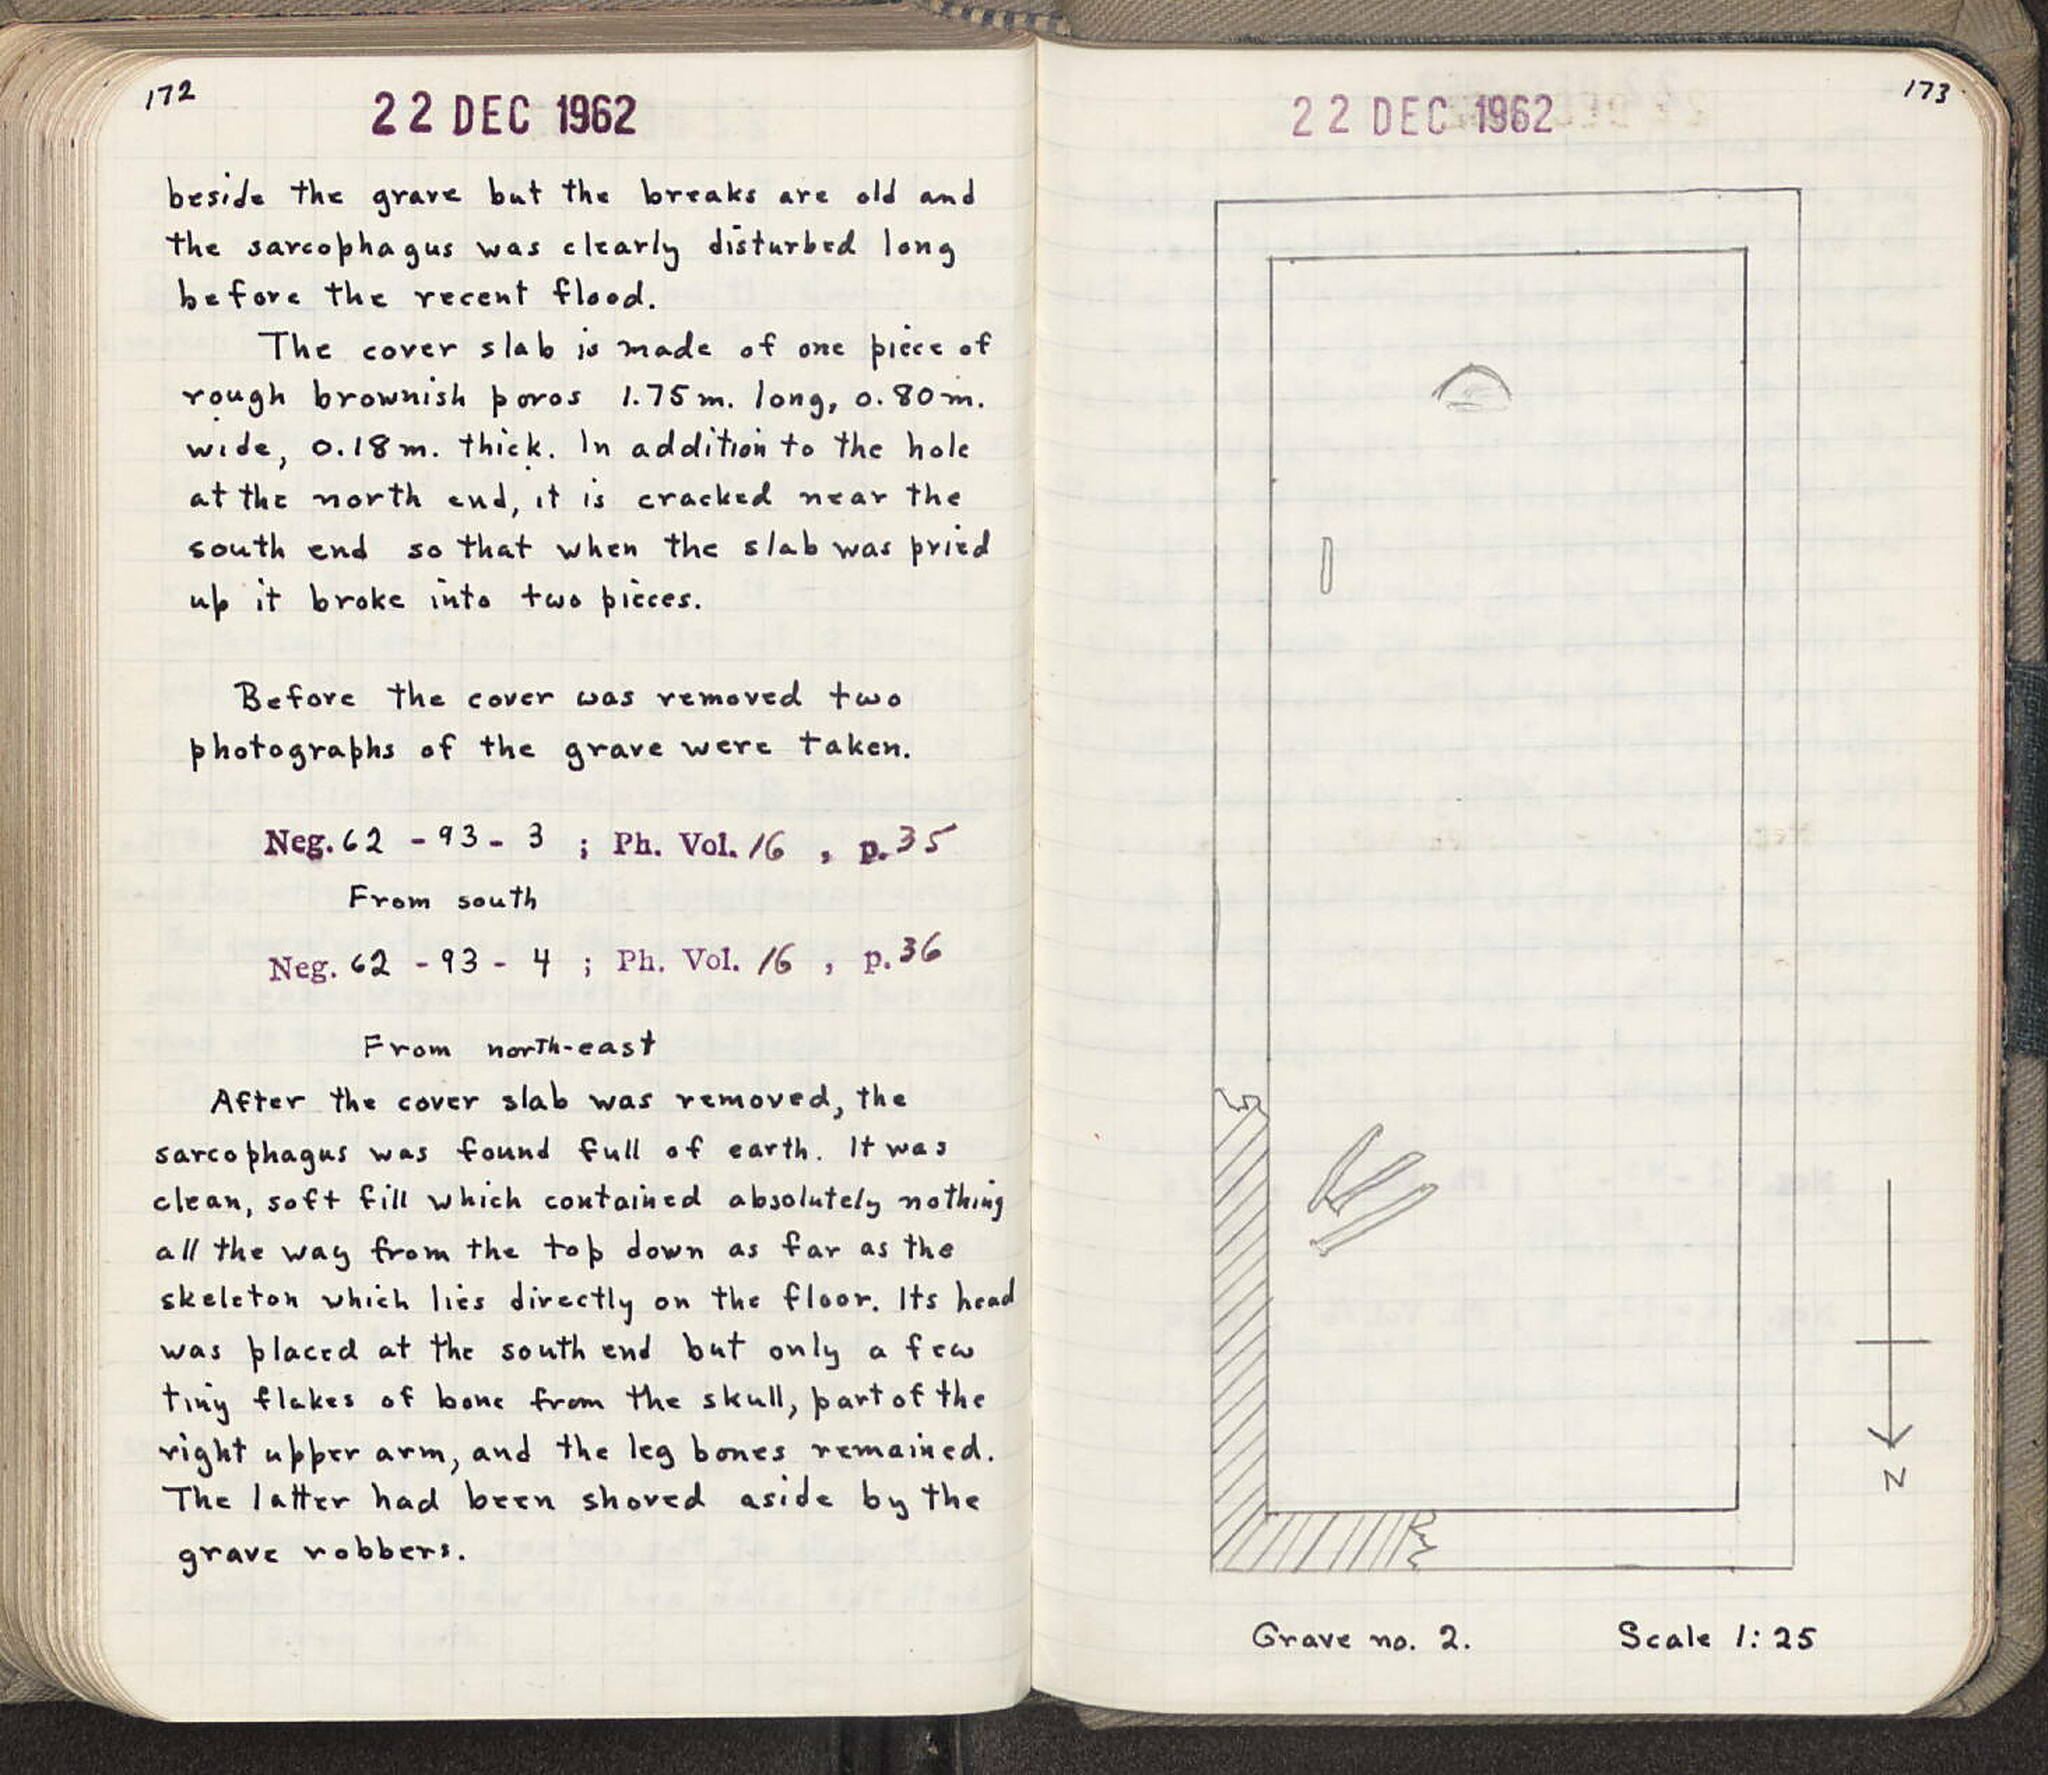 172
22 DEC 1962
beside the grave but the breaks are old and
the sarcophagus was clearly disturbed long
before the recent flood.
The cover slab is made of one piece of
rough brownish poros 1.75 m. long, 0.80 m.
wide, 0.18 m. thick. In addition to the hole
at the north end, it is cracked near the
south end so that when the slab was pried
up it broke into two pieces.
Before the cover was removed two
photographs of the grave were taken.
Neg. 62 - 93 - 3 ; Ph. Vol. 16 , p. 35
From south
Neg. 62 - 93 - 4 ; Ph. Vol. 16 , p. 36
From north-east
After the cover slab was removed, the
sarcophagus was found full of earth. It was
clean, soft fill which contained absolutely nothing
all the way from the top down as far as the
skeleton which lies directly on the floor. Its head
was placed at the south end but only a few
tiny flakes of bone from the skull, part of the
right upper arm, and the leg bones remained.
The latter had been shoved aside by the
grave robbers.
173
22 DEC 1962
N
Grave no. 2. Scale 1:25